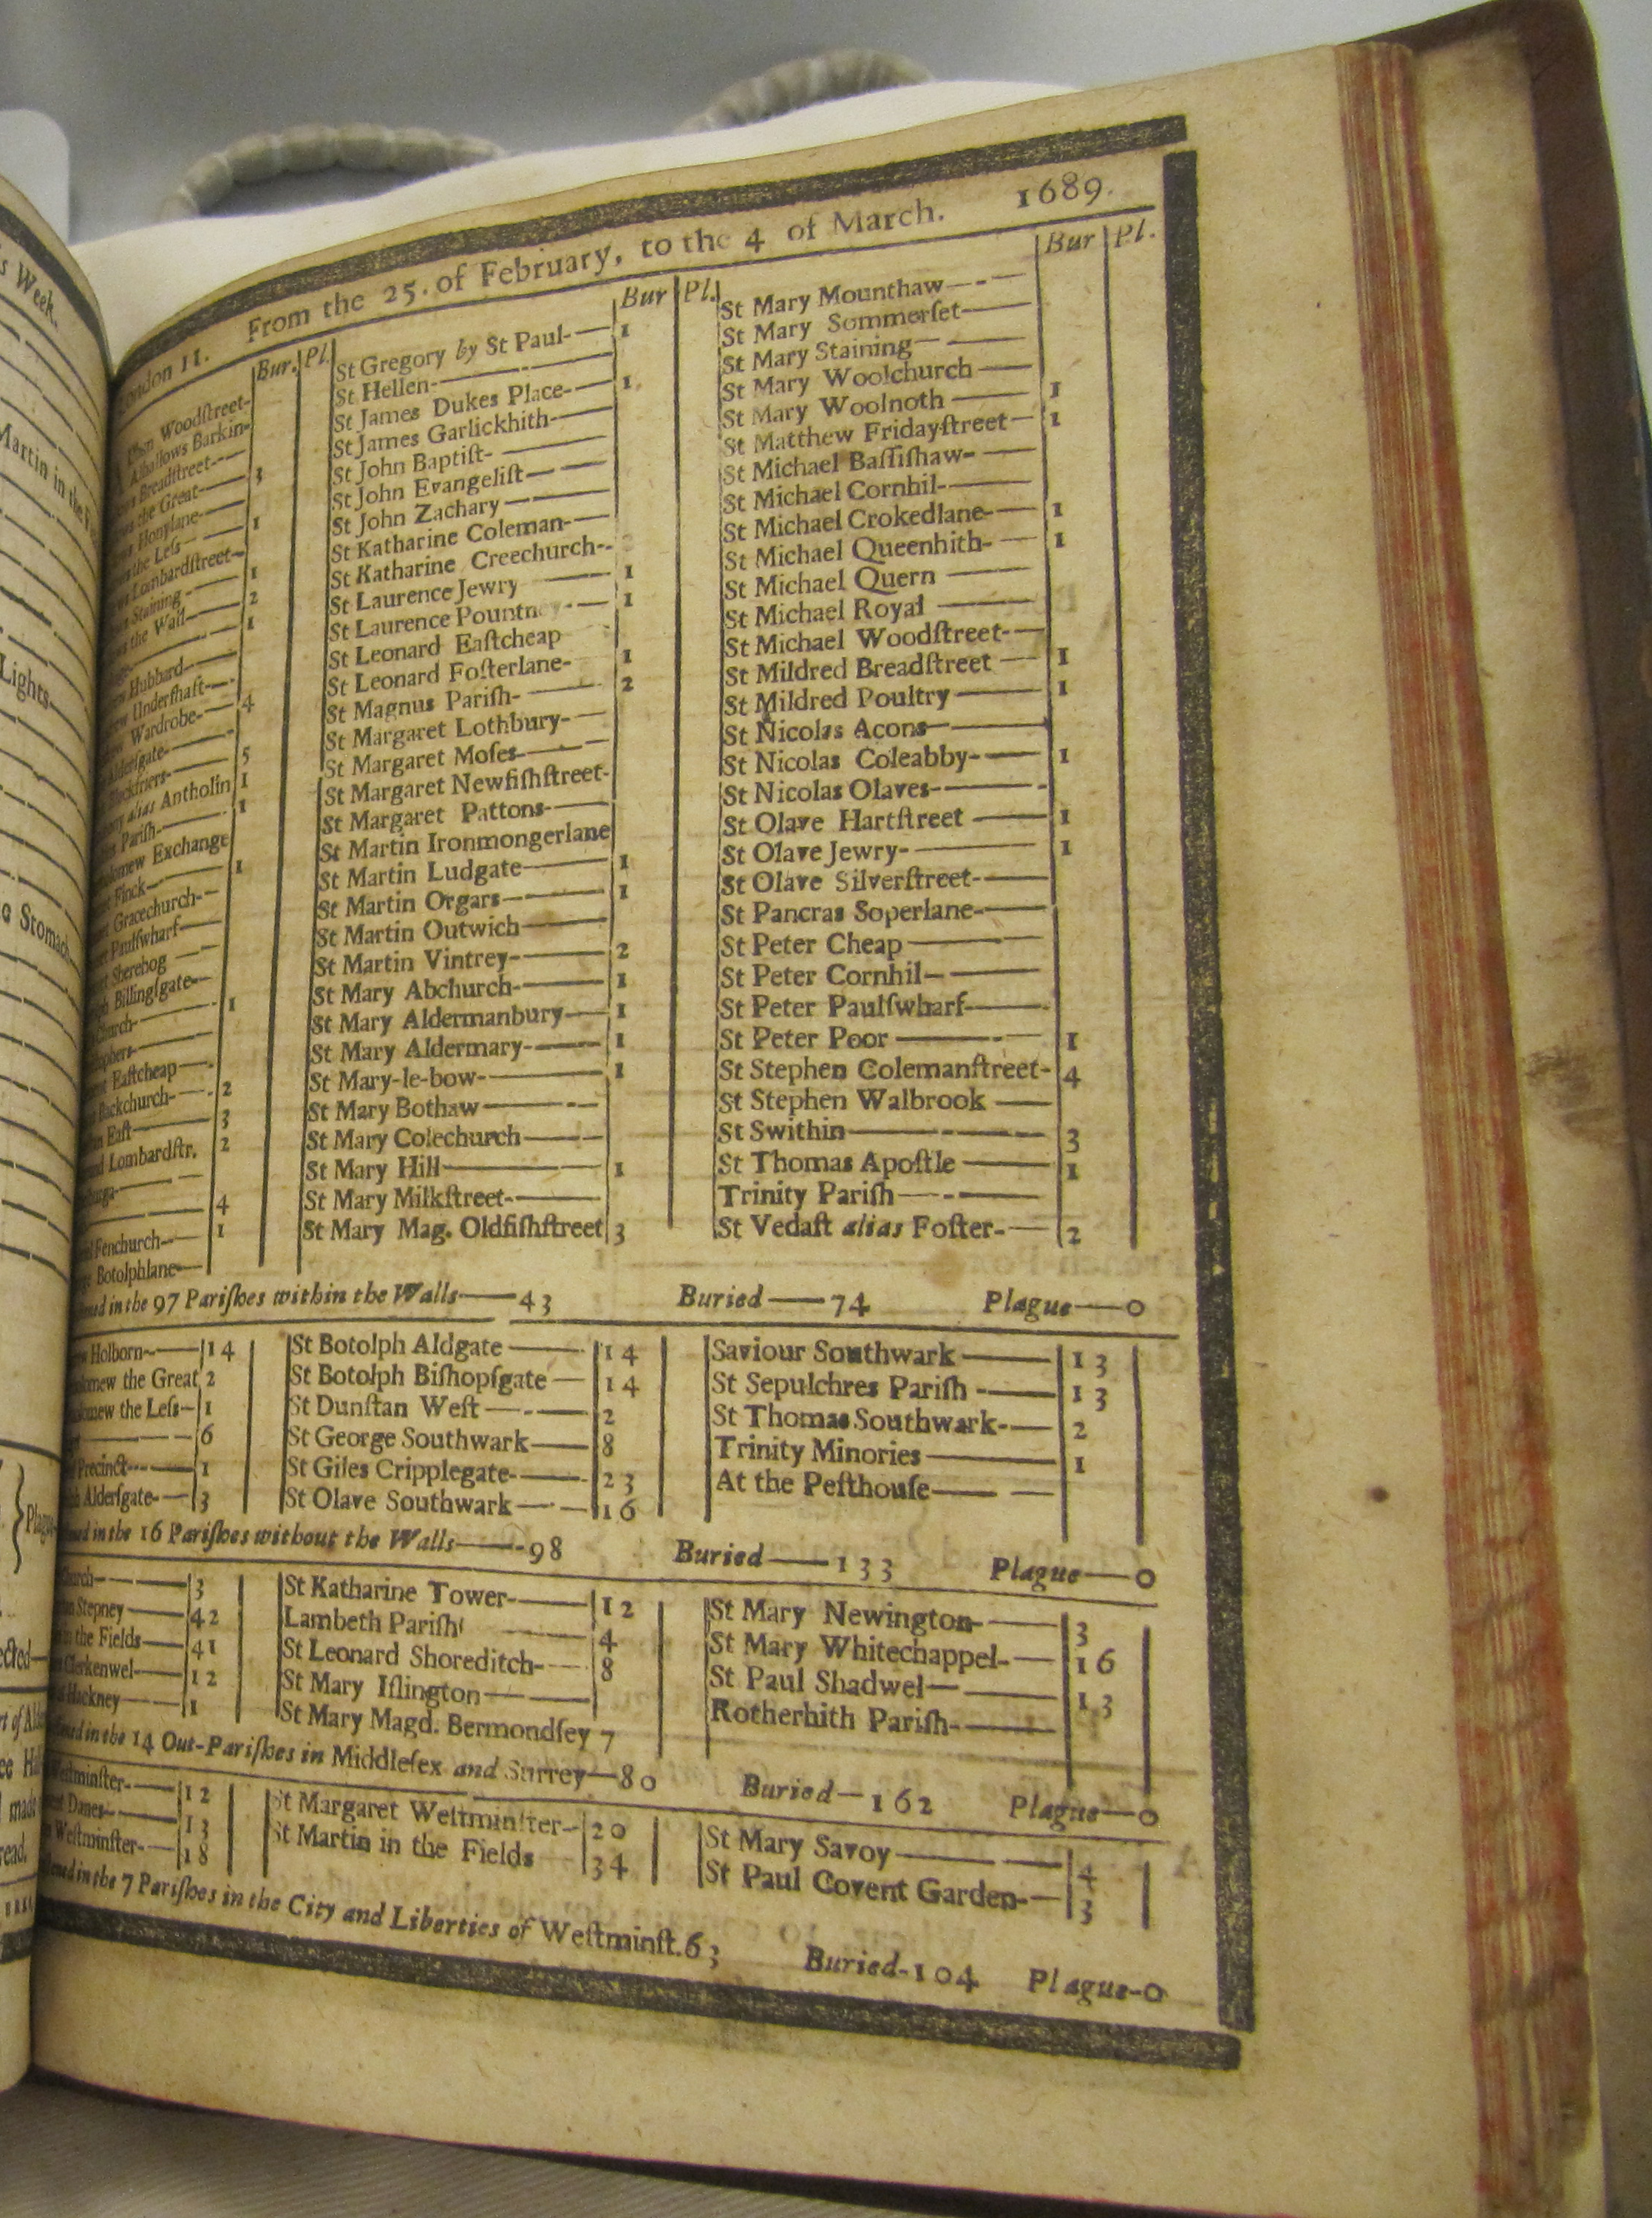 From the 25. of February, to the 4 of March. 1689.
Bur. Pl.
Woodſtreet-
Barkin-
Breadſtreet-
the Great— 3
Honylane-
the Leſs— 1
Lombardſtreet-
Staining- 1
the Wall— 2
1
Hubbard-
Underſhaft-
Wardrobe- 4
5
alias Antholin 1
Pariſh- 1
Exchange
Finck- 1
Gracechurch-
Paulſwharf-
Sherehog
Billingſgate-
1
Eaſtcheap
Backchurch- 2
Eaſt- 3
Lombardſtr. 2
4
Fenchurch- 1
Botolphlane-
Bur Pl.
St Gregory by St Paul- 1
St Hellen-
St James Dukes Place- 1
St James Garlickhith-
St John Baptiſt-
St John Evangeliſt-
St John Zachary
St Katharine Coleman-
St Katharine Creechurch-
St Laurence Jewry 1
St Laurence Pountney- 1
St Leonard Eaſtcheap
St Leonard Foſterlane- 1
St Magnus Pariſh- 2
St Margaret Lothbury-
St Margaret Moſes-
St Margaret Newfiſhſtreet-
St Margaret Pattons-
St Martin Ironmongerlane
St Martin Ludgate— 1
St Martin Orgars— 1
St Martin Outwich—
St Martin Vintrey- 2
St Mary Abchurch- 1
St Mary Aldermanbury— 1
St Mary Aldermary- 1
St Mary-le-bow- 1
St Mary Bothaw—
St Mary Colechurch—
St Mary Hill— 1
St Mary Milkſtreet-
St Mary Mag. Oldfiſhſtreet 3
Bur Pl.
St Mary Mounthaw—
St Mary Sommerſet—
St Mary Staining—
St Mary Woolchurch —
St Mary Woolnoth — 1
St Matthew Fridayſtreet — 1
St Michael Baſſiſhaw-
St Michael Cornhil-
St Michael Crokedlane- 1
St Michael Queenhith- 1
St Michael Quern —
St Michael Royal —
St Michael Woodſtreet-
St Mildred Breadſtreet — 1
St Mildred Poultry — 1
St Nicolas Acons—
St Nicolas Coleabby- 1
St Nicolas Olaves-
St Olave Hartſtreet — 1
St Olave Jewry- 1
St Olave Silverſtreet-
St Pancras Soperlane-
St Peter Cheap —
St Peter Cornhil—
St Peter Paulſwharf—
St Peter Poor — 1
St Stephen Colemanſtreet- 4
St Stephen Walbrook —
St Swithin— 3
St Thomas Apoſtle — 1
Trinity Pariſh—
St Vedaſt alias Foſter- 2
in the 97 Pariſhes within the Walls—43 Buried—74 Plague—0
Holborn— 14
the Great 2
the Leſs— 1
6
Precinct— 1
Alderſgate- 3
St Botolph Aldgate — 14
St Botolph Biſhopſgate — 14
St Dunſtan Weſt — 2
St George Southwark— 8
St Giles Cripplegate- 23
St Olave Southwark — 16
Saviour Southwark — 13
St Sepulchres Pariſh — 13
St Thomas Southwark- 2
Trinity Minories — 1
At the Peſthouſe—
in the 16 Pariſhes without the Walls—98 Buried—133 Plague—0
3
Stepney— 42
in the Fields— 41
Clerkenwel— 12
Hackney— 1
St Katharine Tower- 12
Lambeth Pariſh 4
St Leonard Shoreditch- 8
St Mary Iſlington —
St Mary Magd. Bermondſey 7
St Mary Newington- 3
St Mary Whitechappel- 16
St Paul Shadwel— 13
Rotherhith Pariſh-
in the 14 Out-Pariſhes in Middleſex and Surrey—80 Buried—162 Plague—0
12
Danes— 13
Weſtminſter- 18
St Margaret Weſtminſter- 20
St Martin in the Fields 34
St Mary Savoy — 4
St Paul Covent Garden- 3
in the 7 Pariſhes in the City and Liberties of Weſtminſt. 63 Buried-104 Plague-0
Week.
Martin in the
Lights
Stomach